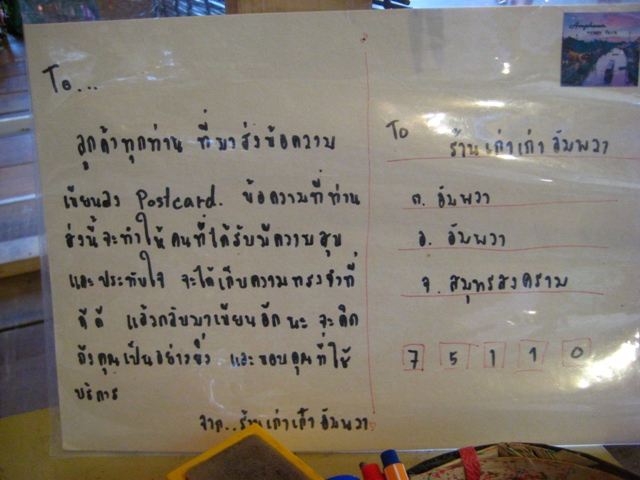 To...
ลูกค้าทุกท่าน ที่มาส่งข้อความ
เขียนลง Postcard. ข้อความที่ท่าน
ส่งนี้จะทำให้คนที่ได้รับมีความสุข
และประทับใจ จะได้เก็บความทรงจำที่
ดีดี แล้วกลับมาเขียนอีกนะ จะคิด
ถึงคุณเป็นอย่างยิ่ง และขอบคุณที่ใช้
บริการ
จาก..ร้านเก่าเก๋าอัมพวา
To ร้านเก่าเก๋าอัมพวา
ต. อัมพวา
อ. อัมพวา
จ. สมุทรสงคราม
7 5 1 1 0